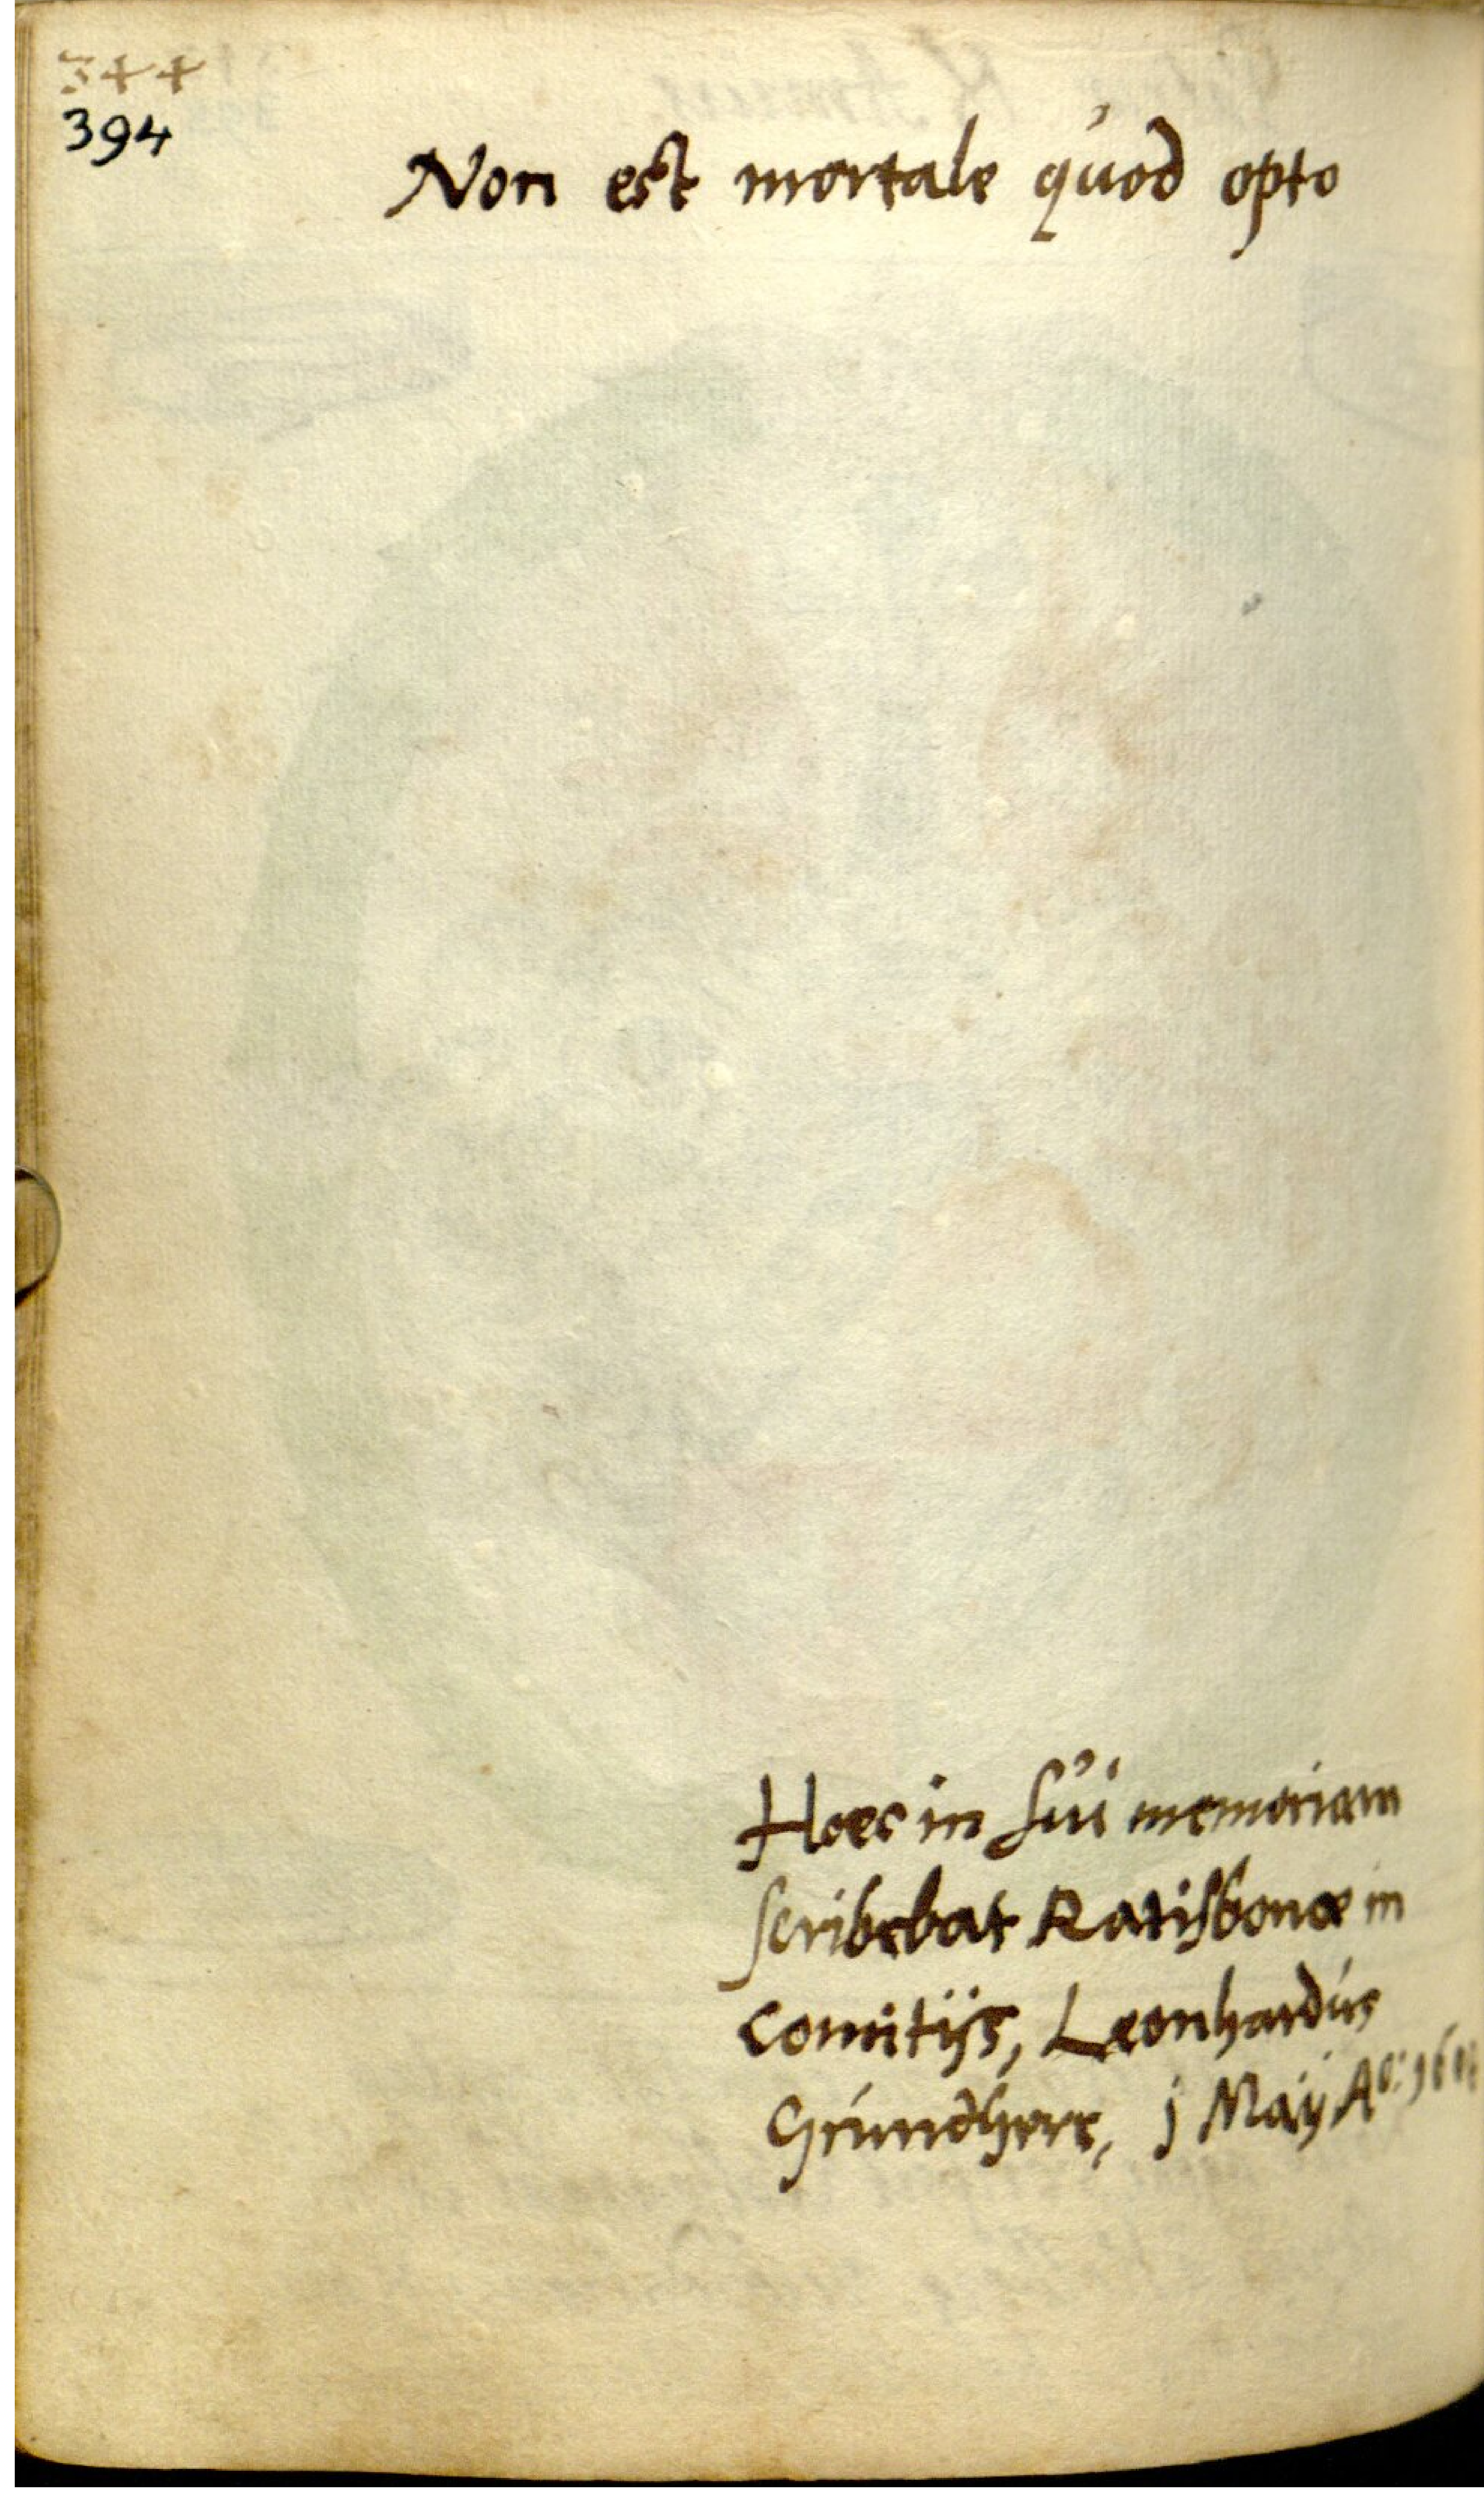 344
394
Non est mortale quod opto
Hoec in sui memoriam
scribebat Ratisbonæ in
comitijs, Leonhardus
Grundherr, j Maÿ Aº: